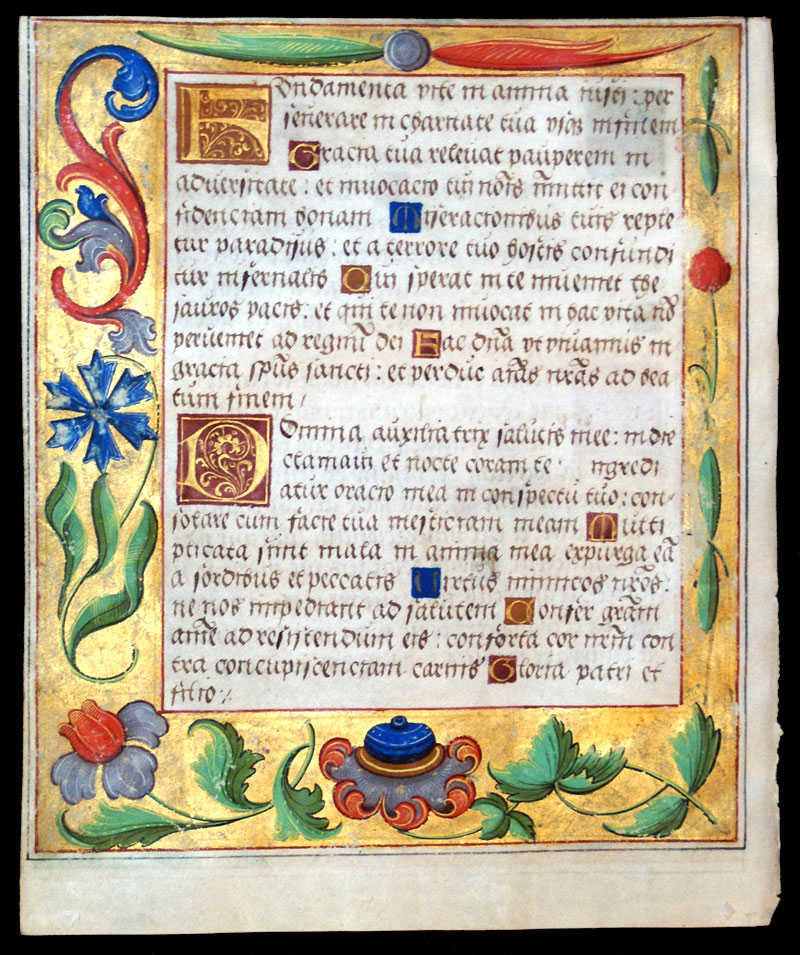 Fundamenta vite in anima iusti: per
seuerare in charitate tua vsq; in finem
Gratia tua releuat pauperem in
aduersitate: et inuocatio tui nōis ei con-
fidentiam bonam Miserationibus tuis reple
tur paradisus: et a terrore tuo hostis confundi
tur infernalis Qui sperat in te inueniet the
sauros pacis: et qui te non inuocat in hac vita nō
perueniet ad regnū dei Fac dn̄a vt viuamus in
gratia sp̄us sancti: et perduc aīas nr̄as ad bea
tum finem/
Domina auxiliatrix salutis mee: in die
clamaui et nocte coram te ngredi
atur oratio mea in conspectu tuo: con-
solare cum facie tua mesticiam meam Multi
plicata sunt mala in anima mea expurga eā
a sordibus et peccatis Virtus inimicos nr̄os:
ne nos impediant ad salutem Confer gr̄am
aīe ad resistendum eis: conforta cor nr̄m con
tra concupiscentiam carnis Gloria patri et
filio: